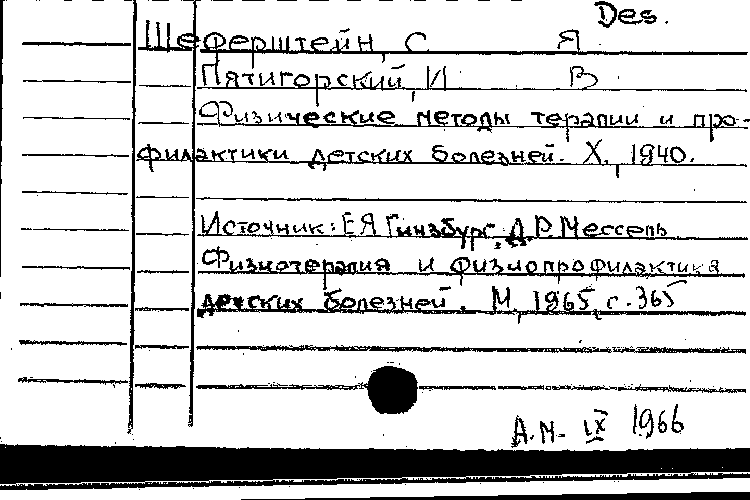 Des.
Шеферштейн, С Я
Пятигорский, И В
Физические методы терапии и про-
филактики детских болезней. Х., 1940.
Источник: Е Я Гинзбург, Д. Р. Мессель
Физиотерапия и физиопрофилактика
детских болезней. М, 1965, с. 365
А.М. IX 1966